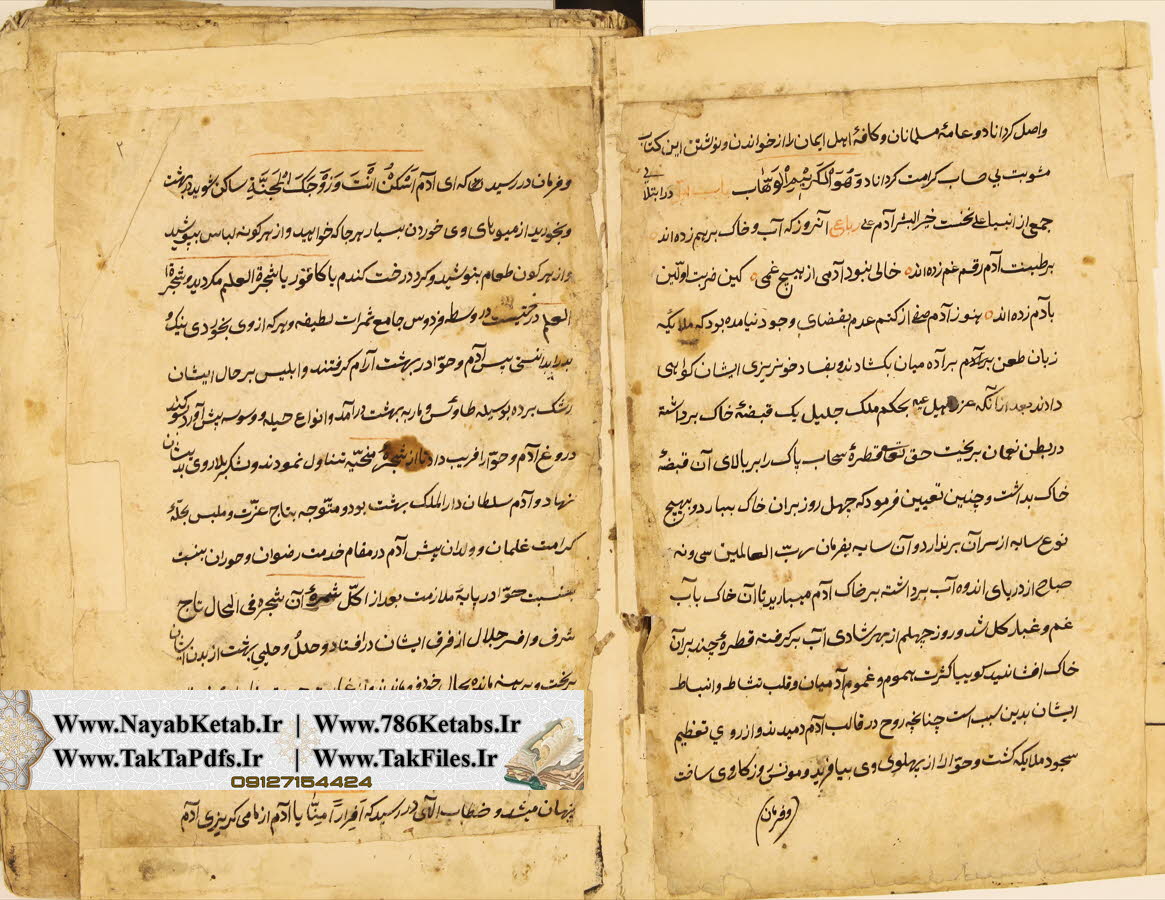 واصل کرداناد و عامهٔ مسلمانان و کافهٔ اهل ایمان را از خواندن و نوشتن این کتاب
مثوبت بی حساب کرامت کرداناد وَهُوَ الْکَرِیْمُ الْوَهَّاب باب در ابتلای
جمعی از انبیا علی نخست خیر البشر آدم علی رباعی آنروز که آب و خاک برهم زده اند
بر طینت آدم رقم غم زده اند خالی نبود آدمی از هیچ غمی کین ضربت اولین
بآدم زده اند هنوز آدم صفی از کتم عدم بفضای وجود نیامده بود که ملایکه
زبان طعن بر آدم بر آده میان بکشادند و بفساد و خونریزی ایشان کواهی
دادند بعد از آنکه عزرائیل بحکم ملک جلیل یک قبضهٔ خاک برداشته
در بطن نعمان بریخت حق تعا قطرهٔ سحاب پاک را بر بالای آن قبضهٔ
خاک بداشت و چنین تعیین فرمود که چهل روز بران خاک ببارد و بهیچ
نوع سایه از سر آن برندارد و آن سایه بفرمان ربّ العالمین سی و نه
صباح از دریای اندوه آب برداشته بر خاک آدم میبارید تا آن خاک بآب
غم و غبار کل شد و روز چهلم از بهر شادی آب برکرفته قطرهٔ چند بران
خاک افشانید کوییا کثرت هموم و غموم آدمیان و قلت نشاط و انبساط
ایشان بدین سبب است چنانچه روح در قالب آدم دمیدند و از روی تعظیم
سجود ملایکه کشت و حوّا را از پهلوی وی بیافرید و مونس روزکار وی ساخت
و فرمان
۲
و فرمان در رسید که ای آدم اُسْکُنْ اَنْتَ وَزَوْجُکَ الْجَنَّةِ ساکن شوید در بهشت
و بخورید از میوهای وی خوردن بسیار هرجا که خواهید و از هر کونه لباس بپوشید
و از هر کون طعام بنوشید و کرد درخت کندم یا کافور یا شجرة العلم مکردید و شجرة
العلم درختیست در وسط فردوس جامع ثمرات لطیفه و هرکه از وی بخوردی نیک و
بد را بدانستی پس آدم و حوّا در بهشت آرام کرفتند و ابلیس بر حال ایشان
رشک برده بوسیله طاوس و مار به بهشت درآمد و انواع حیله و وسوسه پیش آورد سوکند
دروغ آدم و حوّا را فریب داد تا از شجرهٔ تناول نمودند و لشکر بلا روی بدیشان
نهاد و آدم سلطان دارالملک بهشت بود و متوجه بتاج عزّت و ملبس بحلهٔ
کرامت غلمان و ولدان پیش آدم در مقام خدمت رضوان و حوران بهشت
بنسبت حوّا در پایهٔ ملازمت بعد از اکل آن شجره فی الحال تاج
شرف و افسر جلال از فرق ایشان درافتاد و حلل و حلی بهشت از بدن ایشان
بریخت و برهنه مانده بحال خود
Www.NayabKetab.Ir | Www.786Ketabs.Ir
Www.TakTaPdfs.Ir | Www.TakFiles.Ir
09127154424
پنهان میشد و خطاب الٓهی در رسید که اَفِرَاراً مِنَّا یا آدم از ما می کریزی آدم